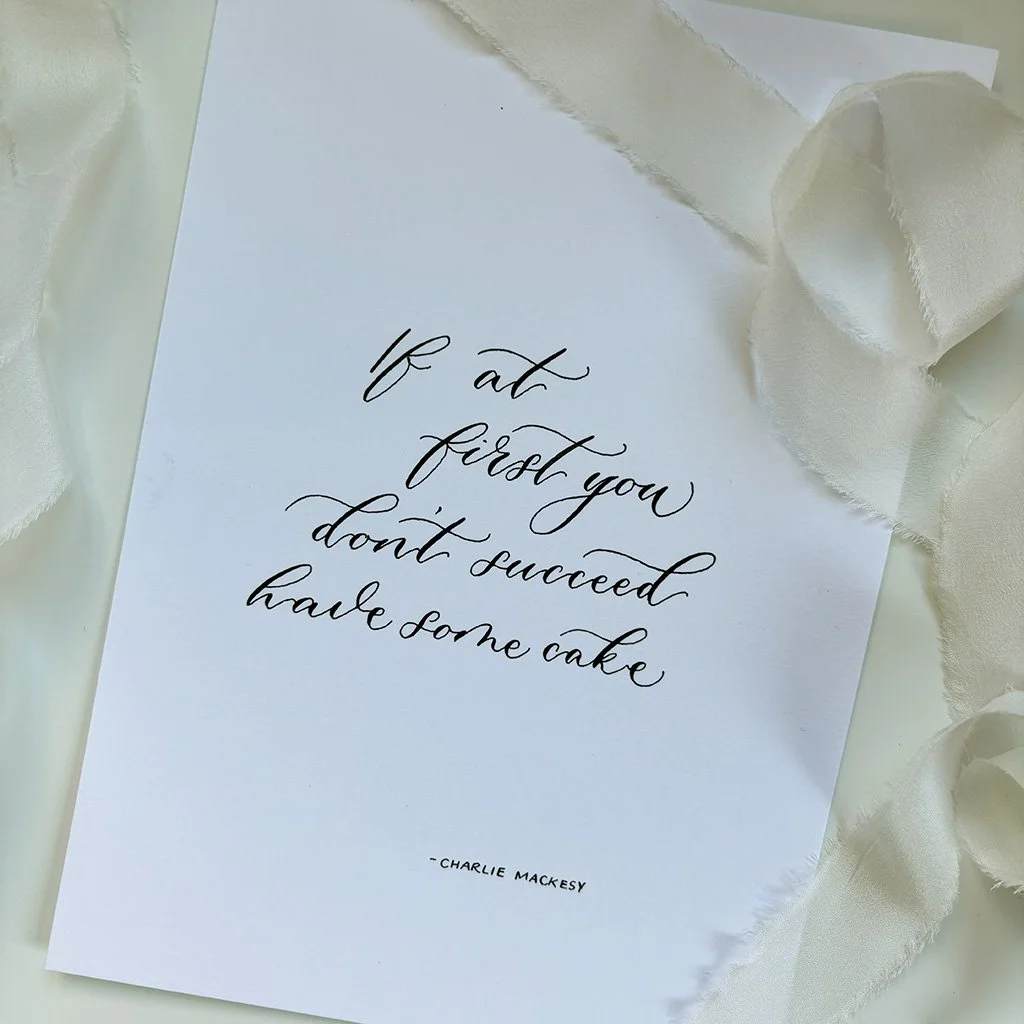 If at
first you
don't succeed
have some cake
-CHARLIE MACKESY